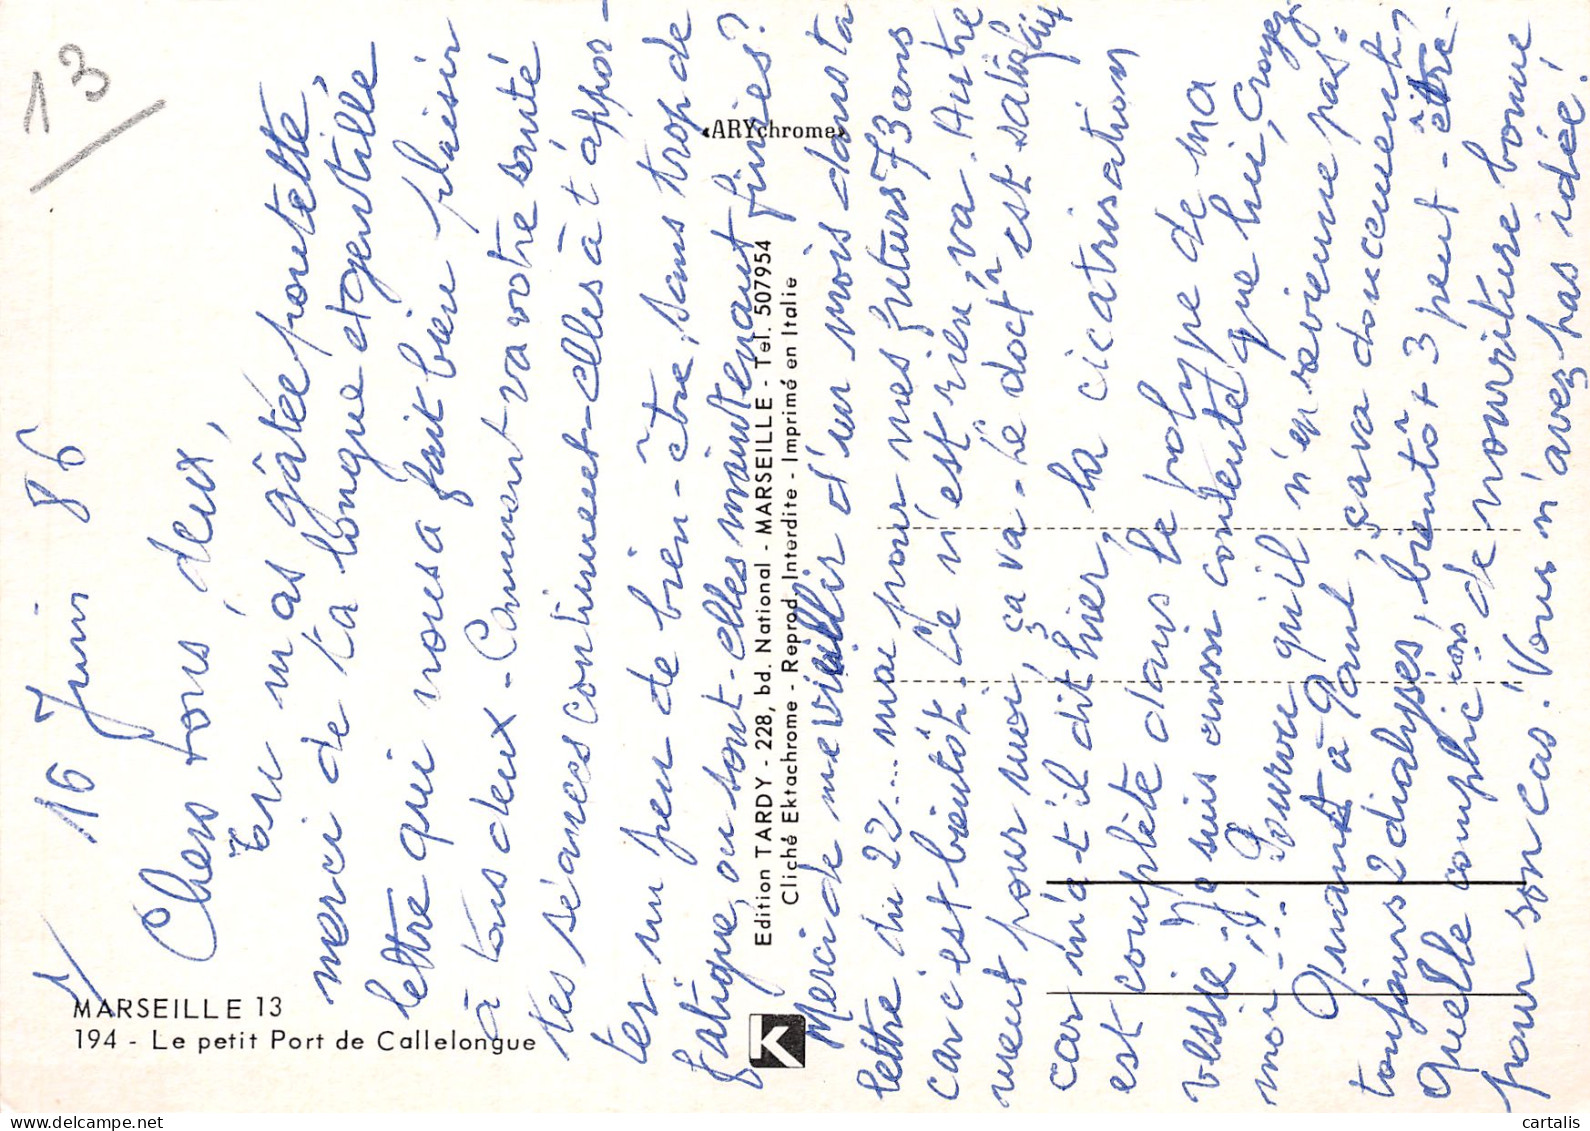 13
1/ 16 Juin 86
Chers vous deux,
Tu m'as gâtée poulette,
merci de ta longue et gentille
lettre qui nous a fait bien plaisir
à tous deux - Comment va votre santé
tes séances continuent-elles à t'appor-
ter un peu de bien-être, sans trop de
fatigue, ou sont-elles maintenant finies?
Merci de me vieillir d'un mois dans ta
lettre du 22 .... mai pour mes futurs 73 ans
car c'est bientôt. Ce n'est rien, va. Autre
ment pour moi, ça va - le doct'r est satisfait
car m'a-t'il dit hier, la cicatrisation
est complète dans le polype de ma
vessie. Je suis aussi contente que lui, croyez-
moi!! Pourvu qu'il n'en revienne pas.
Quant à Paul, ça va doucement,
toujours 2 dialyses, bientôt 3 peut-être.
Quelle complic ions de nourriture bonne
pour son cas! Vous n'avez pas idée!
«ARYchrome»
Edition TARDY - 228, bd. National - MARSEILLE - Tél. 507954
Cliché Ektachrome - Reprod. Interdite - Imprimé en Italie
K
MARSEILLE 13
194 - Le petit Port de Callelongue
cartalis